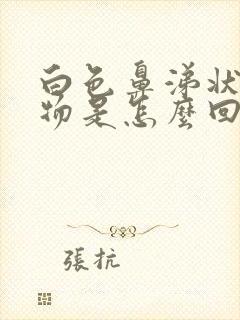 白色鼻涕状
物是怎麼回
張抗